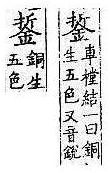 銴
車樘結一曰銅
生五色又音銳
銴
銅生
五色